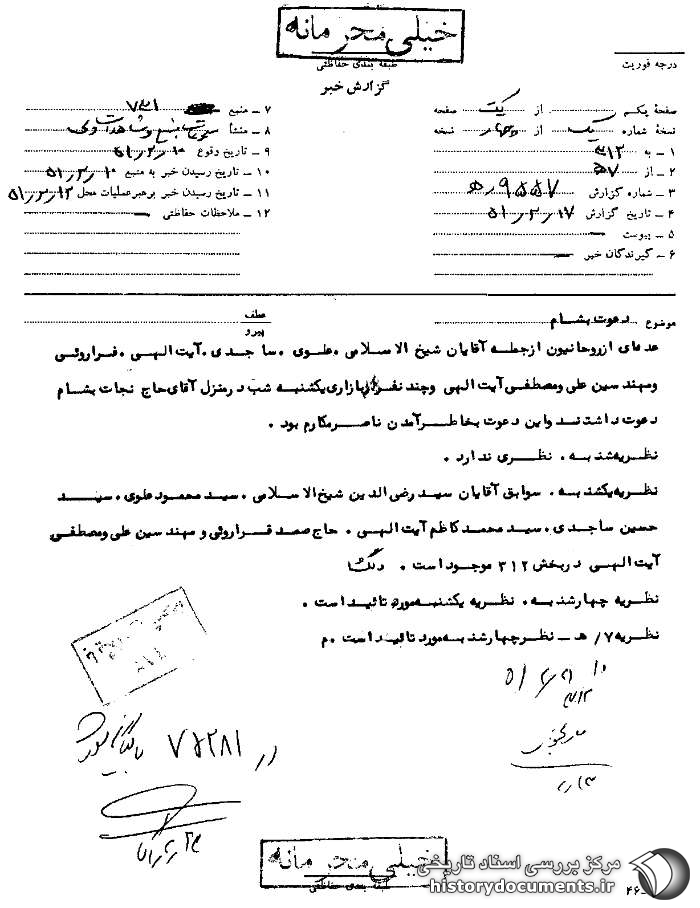 خیلی محرمانه
طبقه بندی حفاظتی
درجه فوریت
گزارش خبر
صفحه یکم از یک صفحه
نسخه شماره یک از چهار نسخه
۱ ـ به ۳۱۲
۲ ـ از ۵۷
۳ ـ شماره گزارش ۹۵۵۷ر۵ه
۴ ـ تاریخ گزارش ۱۷ر۲ر۵۱
۵ ـ پیوست ـ
۶ ـ گیرندگان خبر ـ
۷ ـ منبع ۷۳۱
۸ ـ منشأ
۹ ـ تاریخ وقوع ۱۰ر۲ر۵۱
۱۰ ـ تاریخ رسیدن خبر به منبع ۱۰ر۲ر۵۱
۱۱ ـ تاریخ رسیدن خبر برهبر عملیات محل ۱۲ر۲ر۵۱
۱۲ ـ ملاحظات حفاظتی ـ
موضوع دعوت بشام
عطف
پیرو
عده‌ای از روحانیون ازجمله آقایان شیخ الاسلامی . علوی . ساجدی . آیت الهی . قراروئی
ومهندسین علی ومصطفی آیت الهی وچند نفر از بازاری یکشنبه شب درمنزل آقای حاج نجات بشام
دعوت داشتند واین دعوت بخاطرآمدن ناصرمکارم بود .
نظریه شنبه . نظری ندارد .
نظریه یکشنبه . سوابق آقایان سید رضی الدین شیخ الاسلامی . سید محمود علوی . سید
حسین ساجدی . سید محمد کاظم آیت الهی . حاج صمد قراروئی و مهندسین علی ومصطفی
آیت الهی دربخش ۳۱۲ موجود است .
نظریه چهارشنبه . نظریه یکشنبه مورد تائید است .
نظریه ۷/ هـ ـ نظرچهارشنبه مورد تائید است . م
۳۱۲
در ۷۵۲۸۱
خیلی محرمانه
طبقه بندی حفاظتی
مرکز بررسی اسناد تاریخی
historydocuments.ir